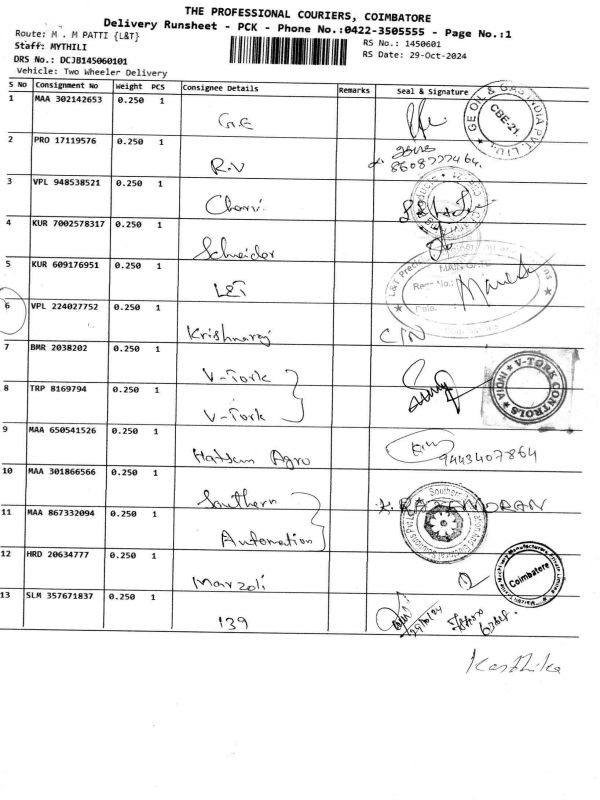 THE PROFESSIONAL COURIERS, COIMBATORE
Delivery Runsheet - PCK - Phone No.:0422-3505555 - Page No.:1
Route: M . M PATTI {L&T}
RS No.: 1450601
Staff: MYTHILI
RS Date: 29-Oct-2024
DRS No.: DCJB145060101
Vehicle: Two Wheeler Delivery
S No Consignment No Weight PCS Consignee Details Remarks Seal & Signature
1 MAA 302142653 0.250 1 G.E
GE OIL & GAS INDIA PVT. LTD. CBE-21.
2 PRO 17119576 0.250 1 R.V
3 VPL 948538521 0.250 1
4 KUR 7002578317 0.250 1 Schneider
5 KUR 609176951 0.250 1 L&T
MAIN GATE
6 VPL 224027752 0.250 1 Krishnaraj
7 BMR 2038202 0.250 1 V-Tork
V-TORK CONTROLS INDIA
8 TRP 8169794 0.250 1 V-Tork
9 MAA 650541526 0.250 1 Agro 9443407864
10 MAA 301866566 0.250 1 Southern
11 MAA 867332094 0.250 1 Automation
12 HRD 20634777 0.250 1 Marzoli
Coimbatore
13 SLM 357671837 0.250 1 139
29/10/24
Karthika